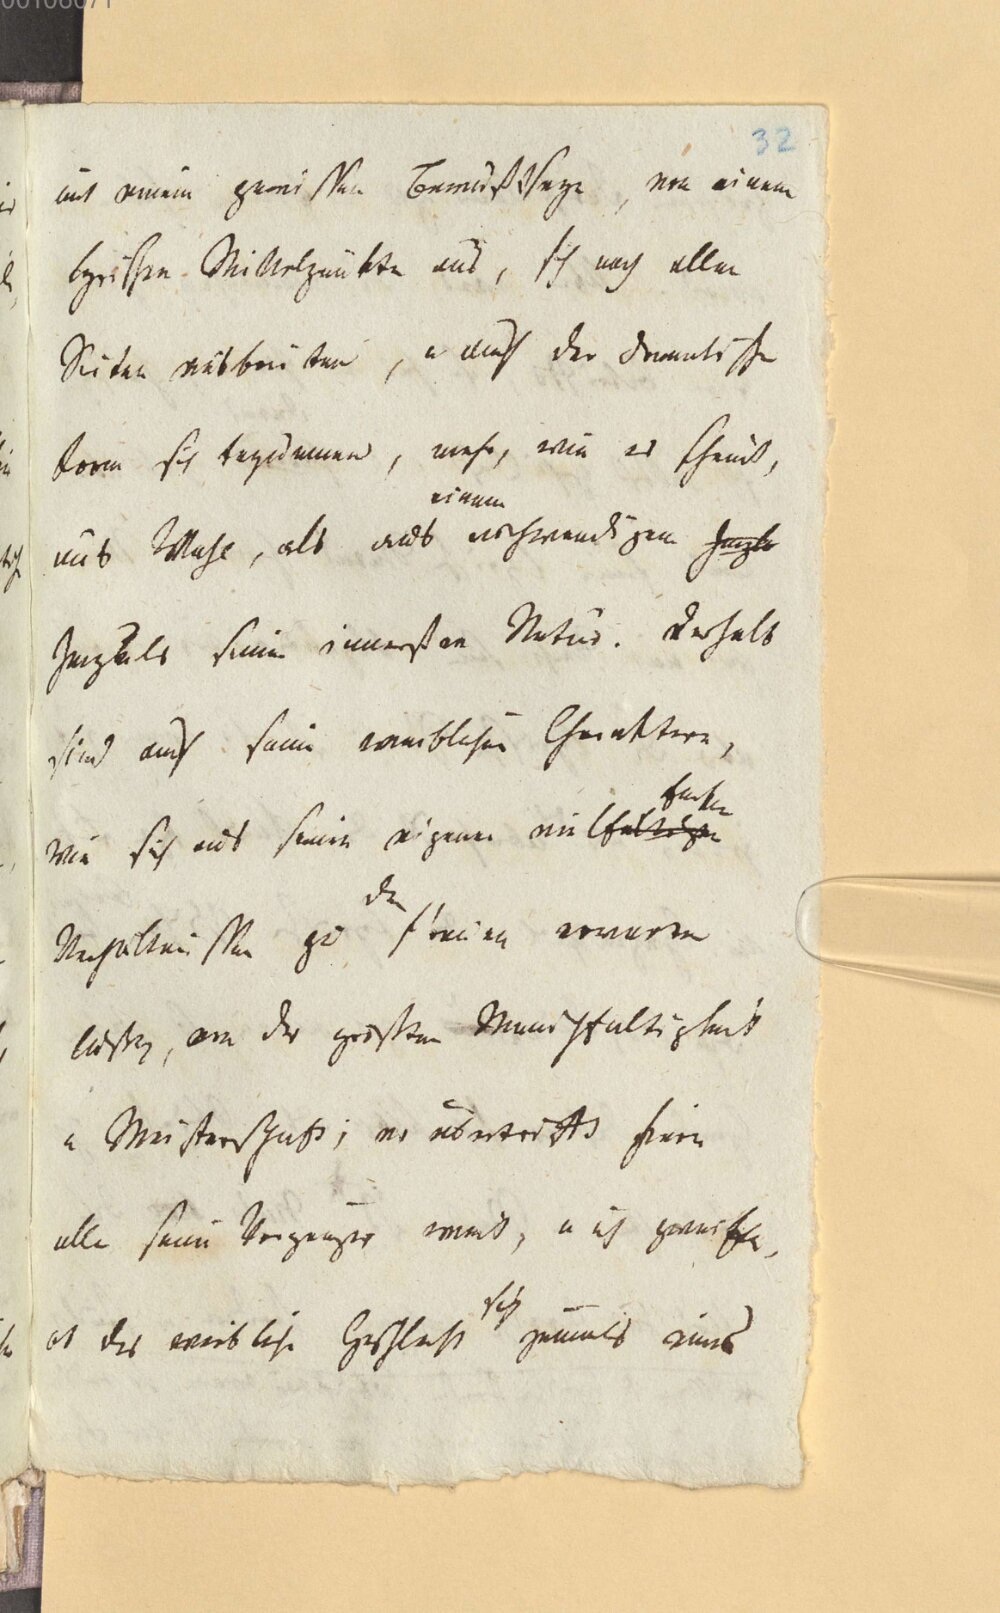 32
mit einem gewissen Bewußtseyn, von einem
lyrischen Mittelpunkte aus, sich nach allen
Seiten ausbreitend, u auch der dramatischen
Form sich bequemend, mehr, wie es scheint,
aus Wahl, als aus einem nothwendigen Impuls
Impuls seiner innersten Natur. Deshalb
sind auch seine weiblichen Charaktere,
wie sich aus seinen eigenen vielfältigen fachen
Verhältnissen zu den Frauen erwarten
ließ, von der größten Mannichfaltigkeit
u Meisterschaft; er übertrifft hierin
alle seine Vorgänger weit, u ich zweifle,
ob das weibliche Geschlecht sich jemals eines